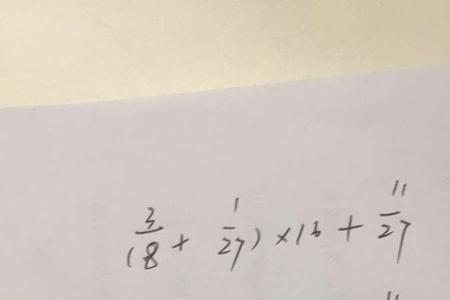 (3/8 + 1/27) × 16 + 11/27